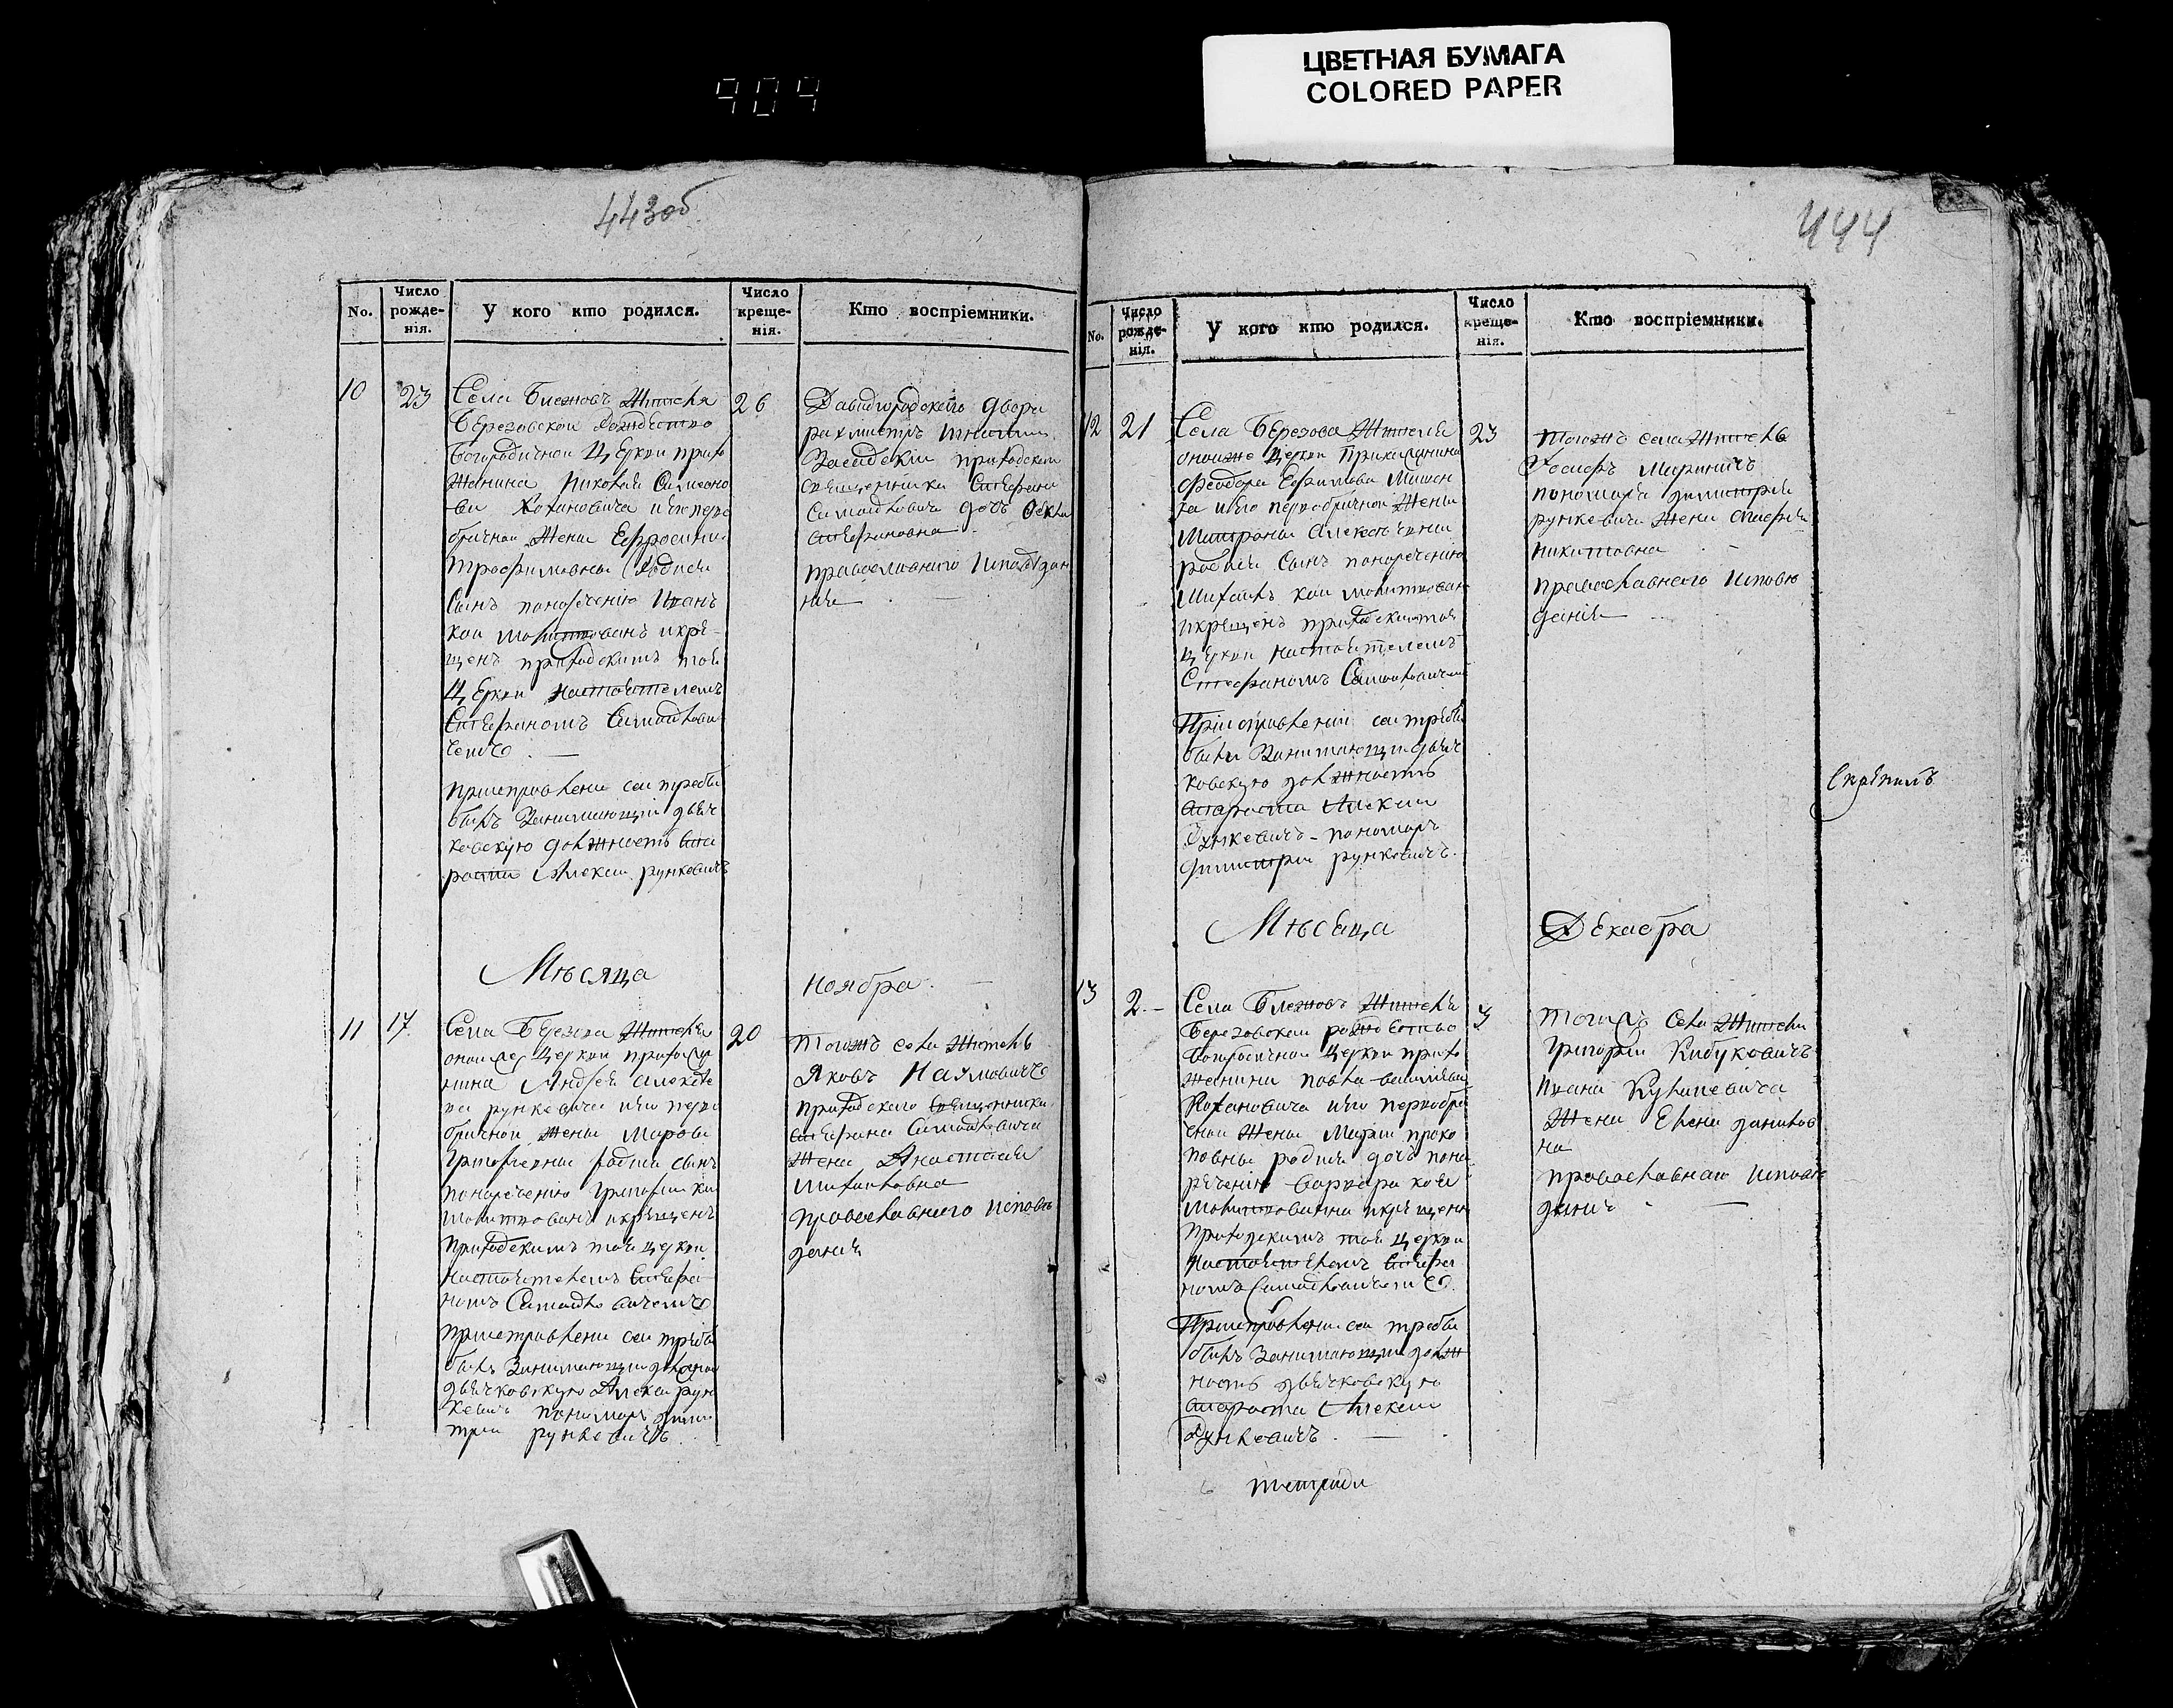 904
ЦВЕТНАЯ БУМАГА
COLORED PAPER
443об
No.
Число рожде-нія.
У кого кто родился.
Число креще-нія.
Кто воспріемники.
10
23
Села Блежовъ Жителя
Березовской Рождество
богородичной Церкви прихо
жанина Николая Симоно
ва Хохановича и его перво
брачной жены Ефросиніи
Трофимовны родился
Сынъ понаречению Иванъ
кой молитвованъ икре-
щенъ приходскимъ тоя
Церкви настоятелемъ
Стефаномъ Самойлови
чемъ
приисправлении сей требы
былъ Занимающій дьяч
ковскую должность
Алексей рункевичъ
26
Давидгородского двора
приходского
священника Стефана
Самойловича дочь
Стефановна
православного Исповедан
ния
Мѣсяца
Ноября
11
17
Села Березова Жителя
оной же Церкви прихожа
нина Андрея Алексее
ва рункевича и его перво
брачной жены
Григорьевны родился сынъ
понаречению Григорий кой
молитвованъ икрещенъ
приходскимъ тоя церкви
настоятелемъ Стефа
номъ Самойловичемъ
приисправлении сей требы
былъ Занимающій должность
дьячковскую Алексей рун
кевичъ пономарь дими
трий рункевичъ
20
тогожъ села Житель
Яковъ Наумовичъ
приходского священника
Стефана Самойловича
жена Анастасия
Михайловна
православного Исповѣ
дания
444
No.
Число рожде-нія.
У кого кто родился.
Число креще-нія.
Кто воспріемники.
12
21
Села Березова Жителя
оной же Церкви Прихожанина
Феодора Ефимова
и его первобрачной жены
Матроны Алексеевны
родился Сынъ понаречению
Михаилъ кой молитвован
икрещенъ приходскимъ тоя
церкви настоятелемъ
Стефаномъ Самойловичемъ
Приисправлении сей требы
были Занимающій дьяч
ковскую должность
Алексей
Рункевичъ - пономарь
димитрий рункевичъ.
23
Тогожъ села Житель
Иосифъ Мариничъ
пономаря димитрия
рункевича жена
Никитовна
православного Исповѣ
дания
Скрѣпилъ
Мѣсяца
Декабра
13
2.
Села Блежовъ Жителя
Березовской рождество
богородичной Церкви прихо
жанина Павла Василева
Кохановича и его первобра
чной жены Марии проко
повны родися дочь пона
речению Варвара коя
молитвованна икрещенна
Приходскимъ тоя церкви
Настоятелемъ Стефа
номъ Самойловичемъ
Приисправлении сей требы
былъ Занимающий долж
ность дьячковскую
Алексей
Рункевичъ.
3
Тогожъ села Жители
Григорий Кибуковичъ
Ивана Кулиневича
Жена Елена данилов
на
православнаго Исповѣ
дания
тетради